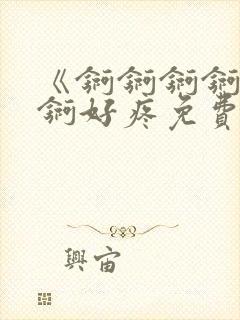 《錒錒錒錒
錒好疼免費
興宙